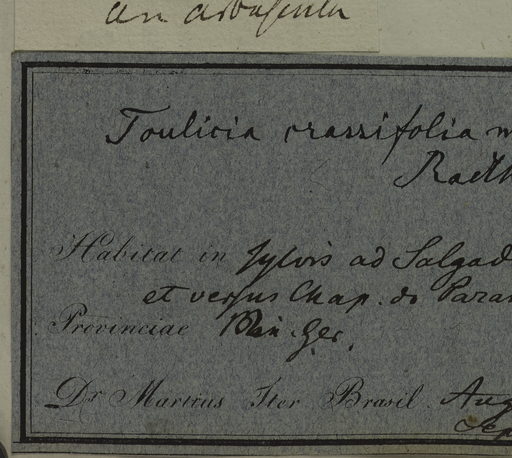 Toulicia crassifolia m
Radlk
Habitat in sylvis ad Salgad
et versus Chap. do Paran
Provinciae Min. Ger.
Dr Martius Iter Brasil. Aug
Sep